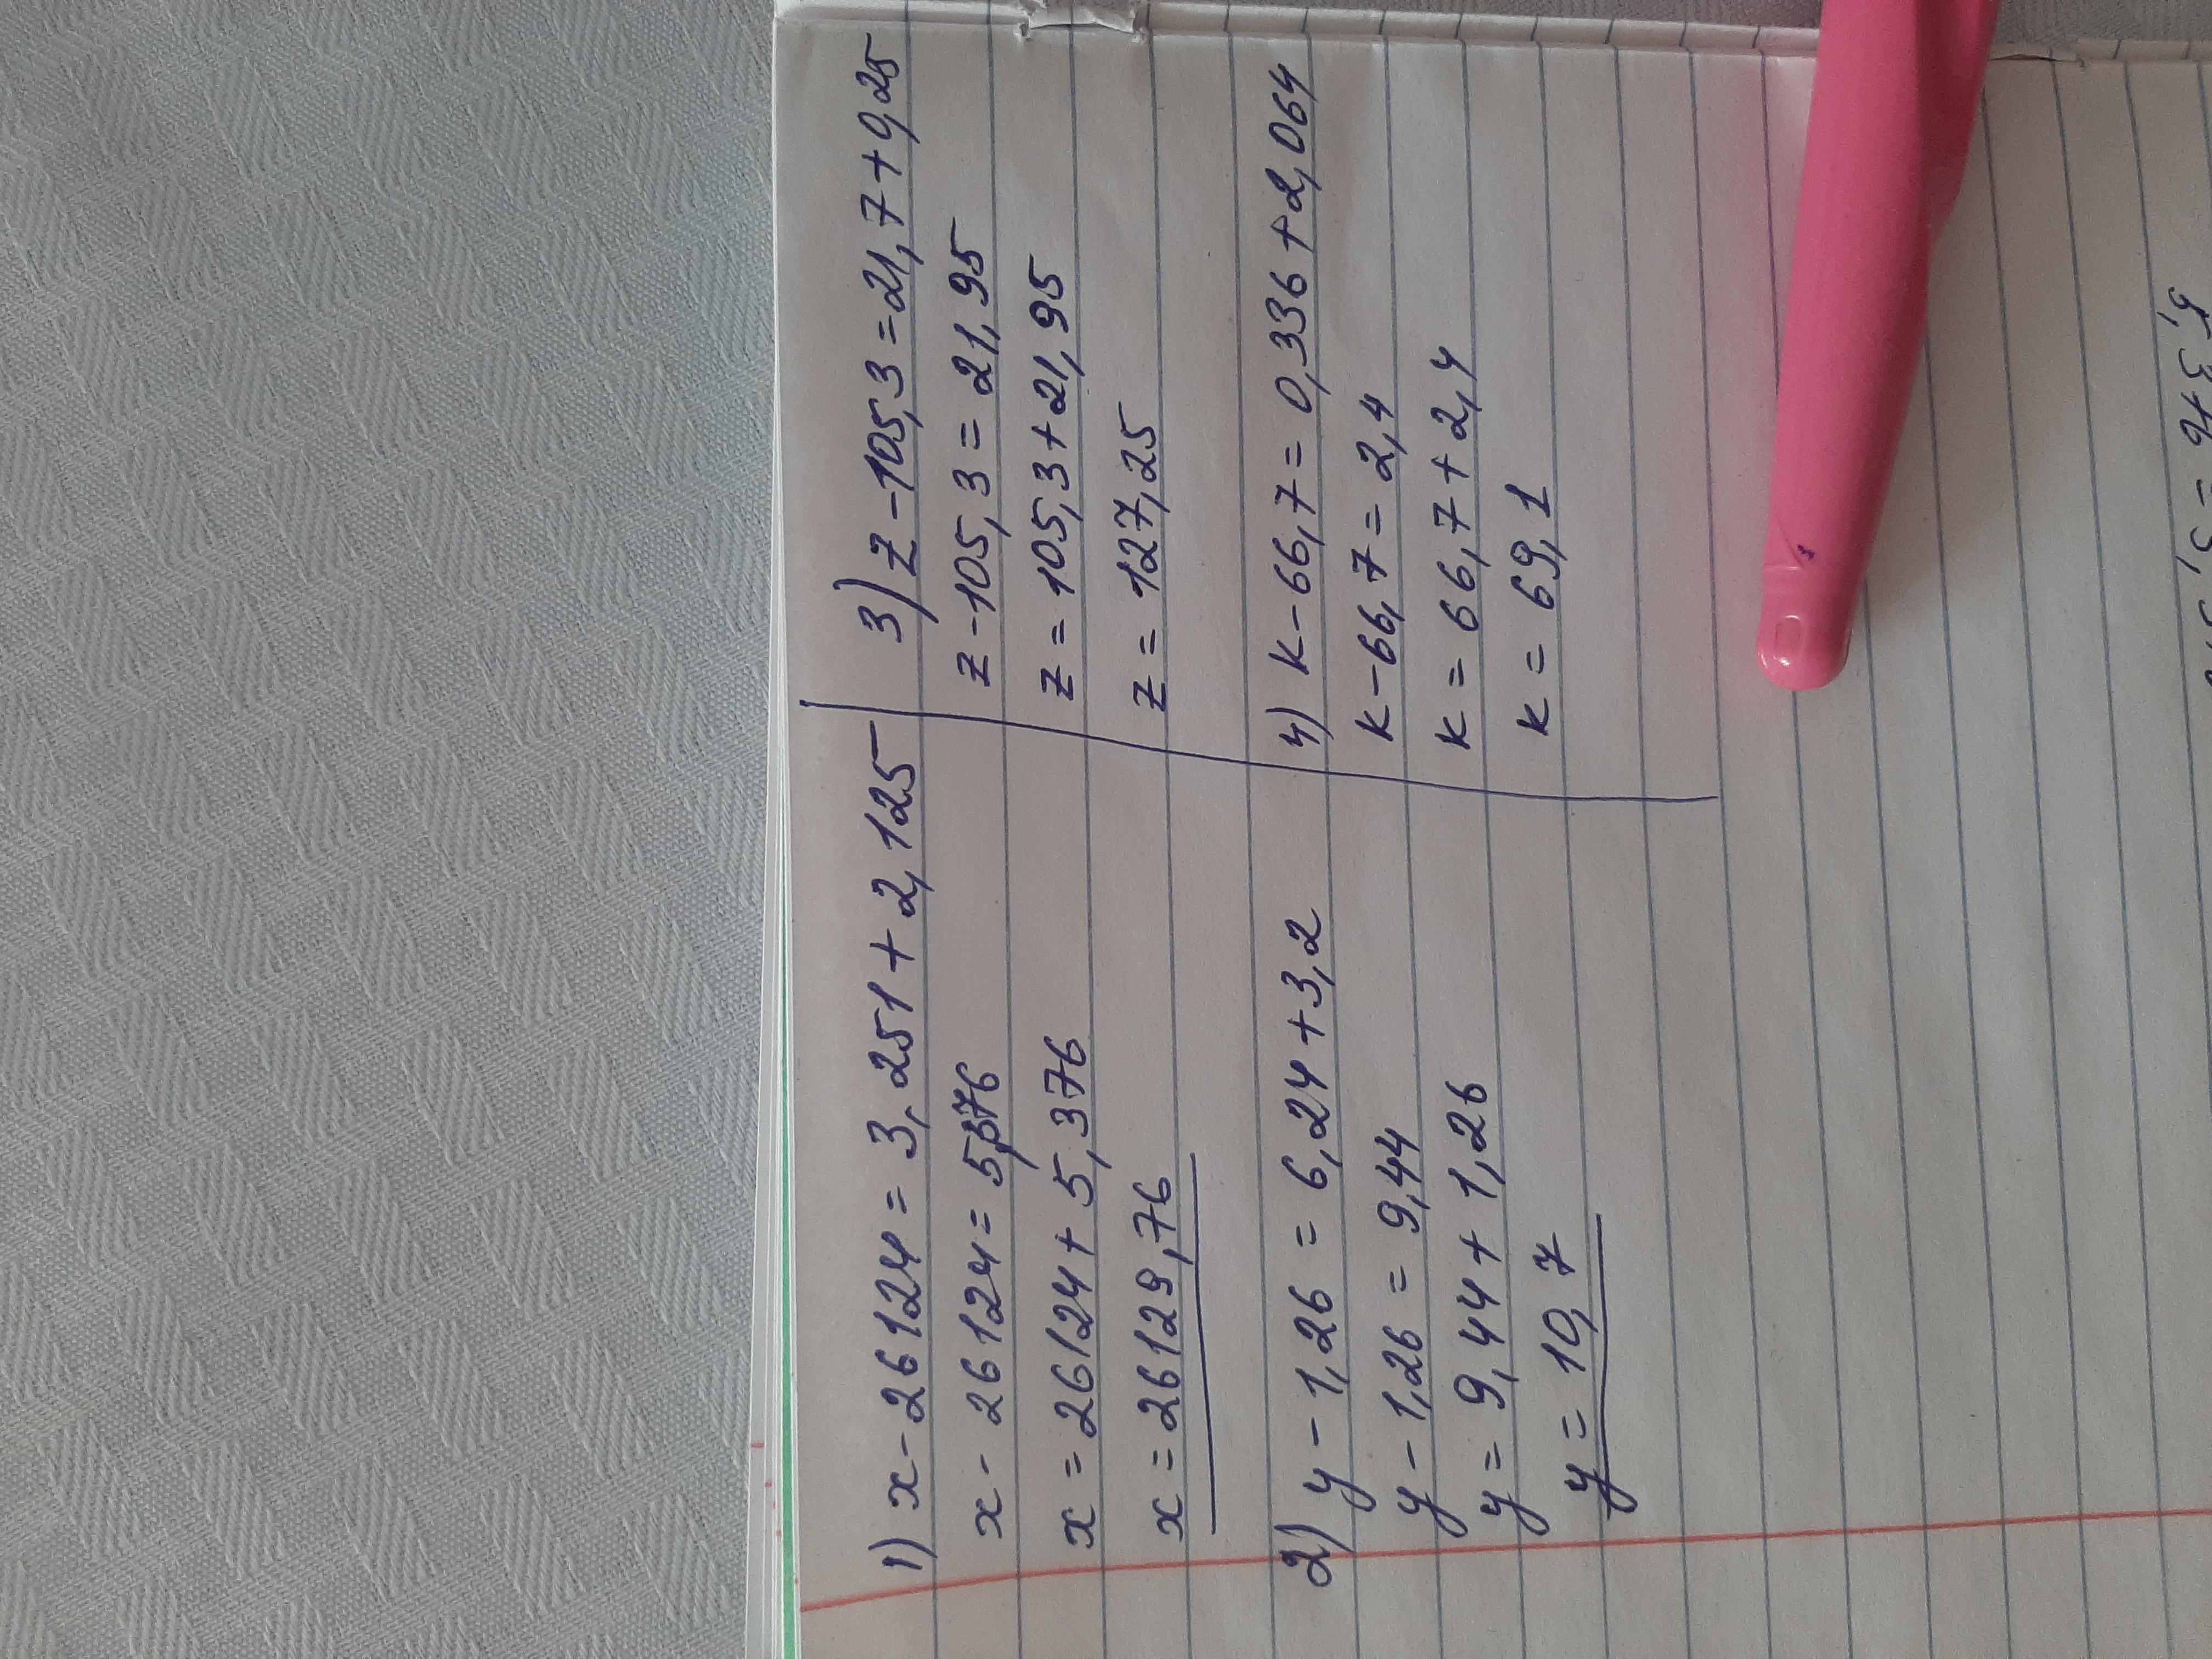 1) x - 26124 = 3,251 + 2,125
x - 26124 = 5,376
x = 26124 + 5,376
x = 26129,76
2) y - 1,26 = 6,24 + 3,2
y - 1,26 = 9,44
y = 9,44 + 1,26
y = 10,7
3) z - 105,3 = 21,7 + 0,25
z - 105,3 = 21,95
z = 105,3 + 21,95
z = 127,25
4) k - 66,7 = 0,336 + 2,064
k - 66,7 = 2,4
k = 66,7 + 2,4
k = 69,1